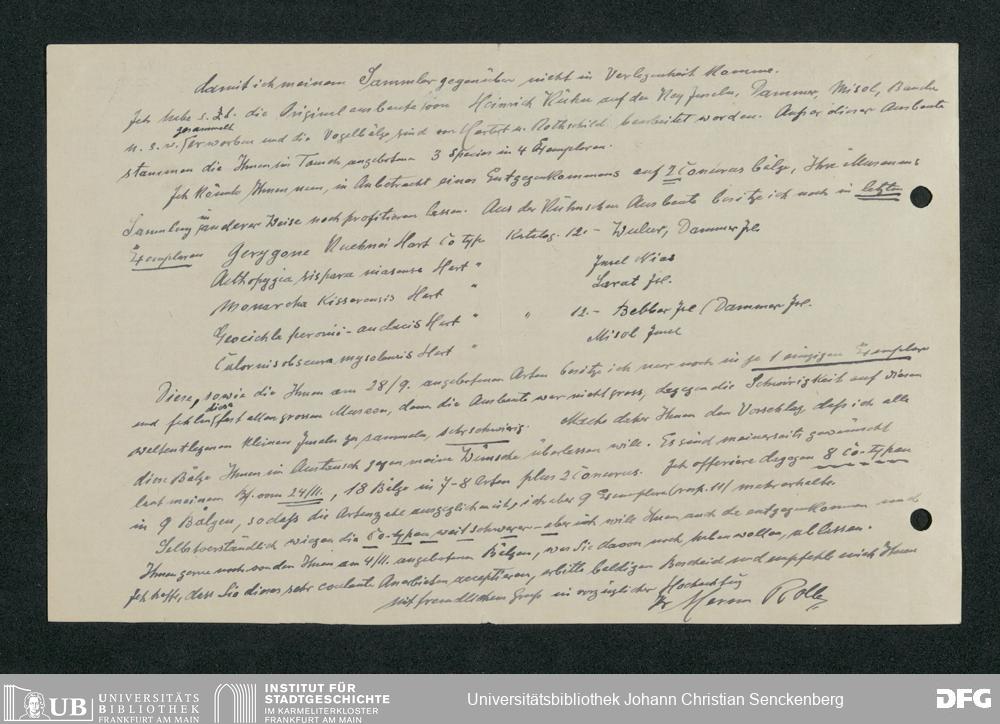 damit ich meinem Sammler gegenüber nicht in Verlegenheit komme.
Ich habe s. Zt. die Original ausbeute von Heinrich Kühn auf den Key Inseln, Dammer, Misol, Banda
gesammelt
u. s. w. erworben und die Vogelbälge sind von Hartert u. Rothschild bearbeitet worden. Aus dieser Ausbeute
stammen die Ihnen im Tausch angebotenen 3 Species in 4 Exemplaren.
Ich könnte Ihnen nun, in Anbetracht eines Entgegenkommens auf 2 Conurus bälge, Ihre Museums
Sammlung in anderer Weise noch profitieren lassen. Aus der Kühnschen Ausbeute besitze ich noch in letzten
Exemplaren Gerygone Kuehni Hart Co typ Katalog. 12.- Wulur, Dammer Isl.
Aethopygia sispara niasense Hart " Insel Nias
Monarcha Kisserensis Hart " Larat Isl.
Geocichla peroni-audacis Hart " " 12.- Bebber Isl (Dammer Isl.
Calornis obscura mysolensis Hart " Misol Insel
Diese, sowie die Ihnen am 28/9. angebotenen Arten besitze ich nur noch in je 1 einzigen Exemplare
diese
und fehlen fast allen grossen Museen, denn die Ausbeute war nicht gross, dagegen die Schwierigkeit auf diesen
weltentlegenen kleinen Inseln zu sammeln, sehr schwierig. Mache daher Ihnen den Vorschlag, daß ich alle
diese Bälge Ihnen im Austausch gegen meine Wünsche überlassen will. Es sind meinerseits gewünscht
laut meinem Bf. vom 24/11., 18 Bälge in 7-8 Arten plus 2 Conurus. Ich offeriere dagegen 8 Co-typen
in 9 Bälgen, so daß die Artenzahl ausgeglichen ist, ich aber 9 Exemplare (resp. 11) mehr erhalte.
Selbstverständlich wiegen die Co-typen weit schwerer - aber ich will Ihnen auch da entgegenkommen und
Ihnen gerne noch von den Ihnen am 4/11. angebotenen Bälgen, was Sie davon noch haben wollen, ablassen.
Ich hoffe, dass Sie dieses sehr coulante Anerbieten acceptieren, erbitte baldigen Bescheid und empfehle mich Ihnen
mit freundlichem Gruß in vorzüglicher Hochachtung
Ihr Herm Rolle
UB UNIVERSITÄTS
BIBLIOTHEK
FRANKFURT AM MAIN
INSTITUT FÜR
STADTGESCHICHTE
IM KARMELITERKLOSTER
FRANKFURT AM MAIN
Universitätsbibliothek Johann Christian Senckenberg
DFG